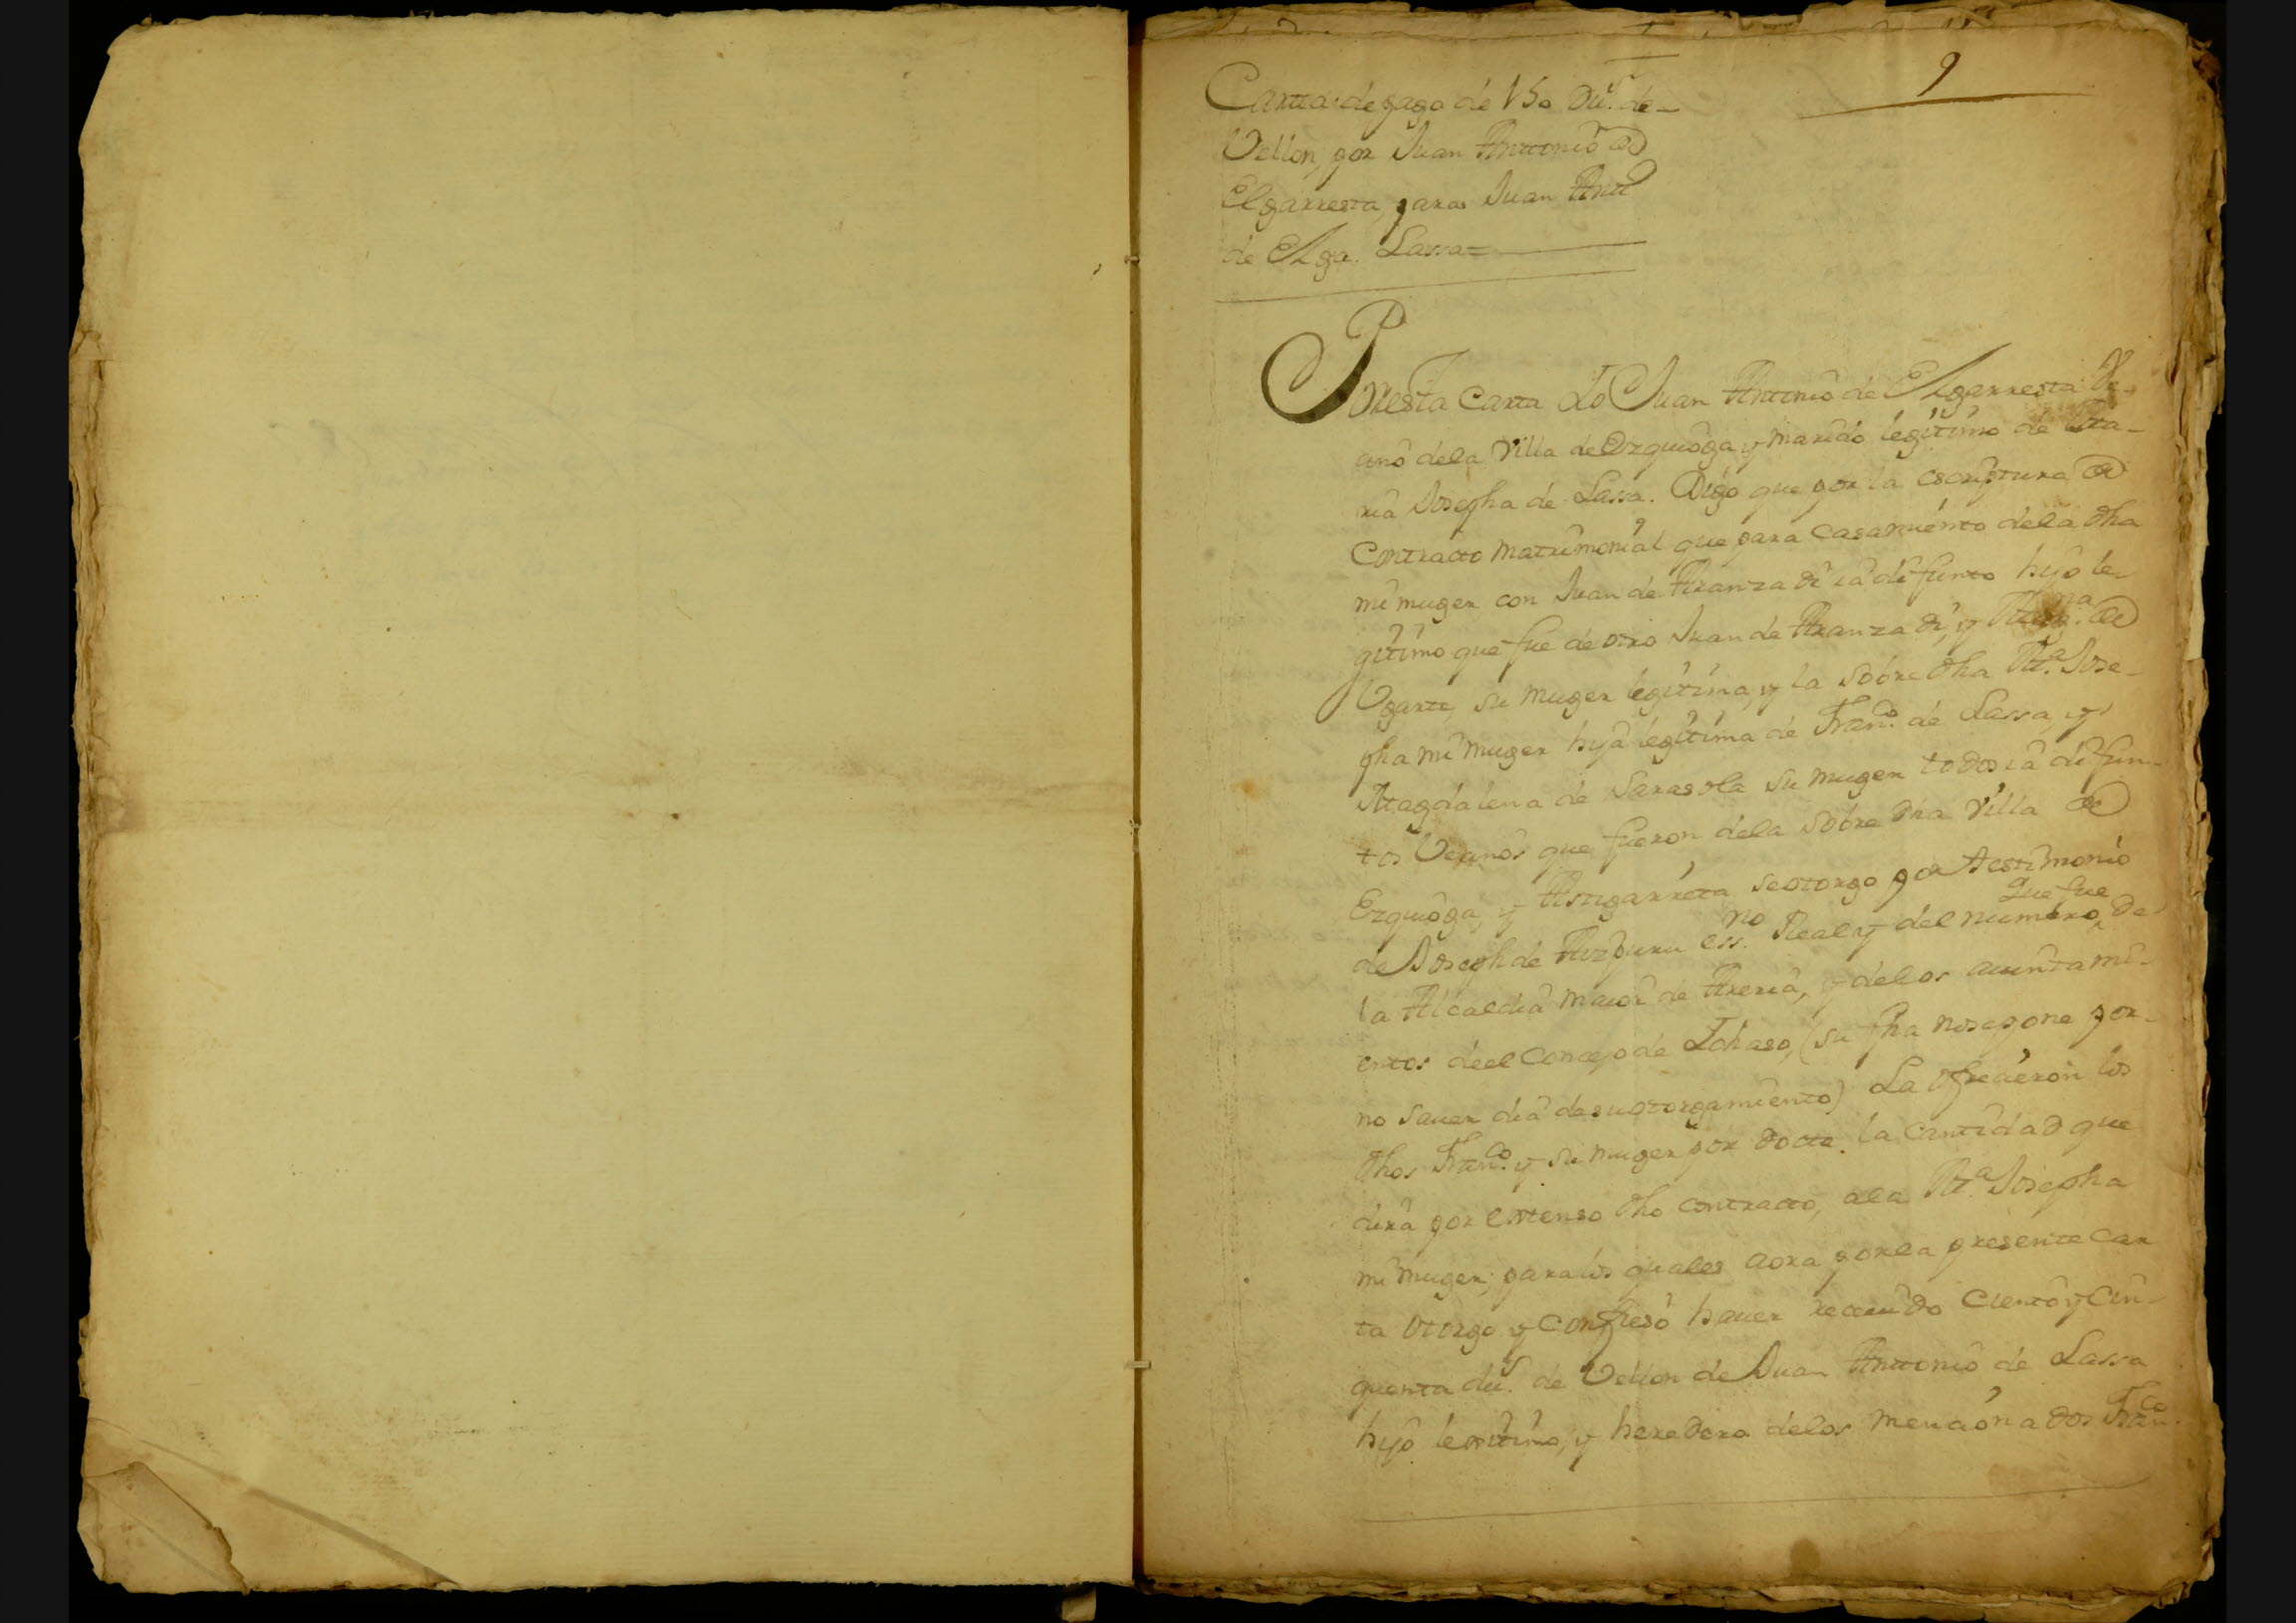 9
Cartta de pago de 150 du.s de
Vellon, por Juan Anttonio de
Elgarresta, para Juan Antt.o
de Lassa=
Por esta Carta Yo Juan Antonio de Elgarresta Ve-
cino de la Villa de Ezquioga y marido legitimo de Ma-
ria Josepha de Lassa. Digo que por la escriptura de
Contracto matrimonial que para Casamiento de la dha
mi muger con Juan de Aranzadi ia difunto hijo le-
gitimo que fue de otro Juan de Aranzadi, y de
Ugarte, su muger legitima, y la sobre dha M.a Jose-
pha mi muger hija legitima de Fran.co de Lassa, y
Magdalena de Sarasola su muger todos ia difun-
tos Vecinos que fueron de la sobre dha Villa de
Ezquioga, y Astigarreta se otorgo por testimonio
de Joseph de Aizpuru ess.no Real y del numero que fue de
la Alcaldia maior de Areria, y de los aiuntami-
entos de el Concejo de Ichaso, (su fha no se pone por
no saver dia de su otorgamiento) La ofrecieron los
dhos Fran.co y su muger por docte la cantidad que
dira por extenso dho contracto, a la M.a Josepha
mi muger; para los quales aora por la presente Car
ta otorgo y Confieso haver recevido Ciento y Cin-
quenta du.s de Vellon de Juan Anttonio de Lassa
hijo lexitimo, y heredero de los mencionados Fran.co